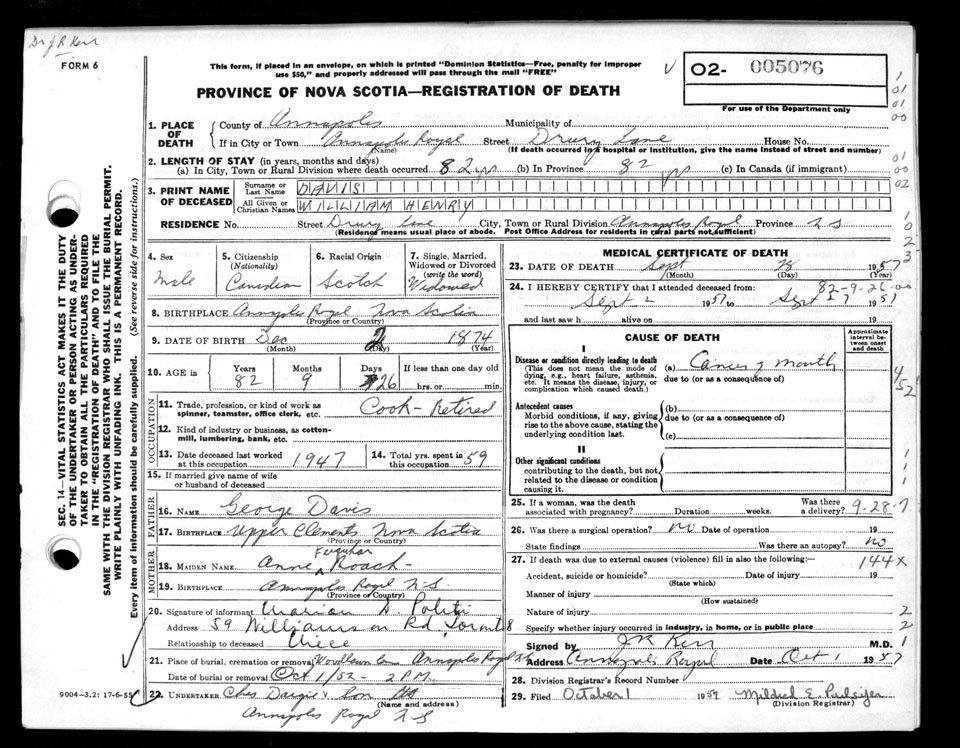 Dr J R Kerr
FORM 6
This form, if placed in an envelope, on which is printed "Dominion Statistics—Free, penalty for improper
use $50," and properly addressed will pass through the mail "FREE"
02- 005076
For use of the Department only
PROVINCE OF NOVA SCOTIA—REGISTRATION OF DEATH
1. PLACE OF DEATH County of Annapolis Municipality of
If in City or Town Annapolis Royal Street Drury Lane House No.
(Name) (If death occurred in a hospital or institution, give the name instead of street and number)
2. LENGTH OF STAY (in years, months and days)
(a) In City, Town or Rural Division where death occurred 82 yrs (b) In Province 82 yrs (c) In Canada (if immigrant)
3. PRINT NAME OF DECEASED
Surname or Last Name DAVIS
All Given or Christian Names WILLIAM HENRY
RESIDENCE No. Street Drury Lane City, Town or Rural Division Annapolis Royal Province N S
(Residence means usual place of abode. Post Office Address for residents in rural parts not sufficient)
SEC. 14—VITAL STATISTICS ACT MAKES IT THE DUTY
OF THE UNDERTAKER OR PERSON ACTING AS UNDER-
TAKER TO OBTAIN ALL THE PARTICULARS REQUIRED
IN THE "REGISTRATION OF DEATH" AND TO FILE THE
SAME WITH THE DIVISION REGISTRAR WHO SHALL ISSUE THE BURIAL PERMIT.
WRITE PLAINLY WITH UNFADING INK. THIS IS A PERMANENT RECORD.
Every item of information should be carefully supplied. (See reverse side for instructions.)
4. Sex Male
5. Citizenship (Nationality) Canadian
6. Racial Origin Scotch
7. Single, Married, Widowed or Divorced (write the word) Widowed
8. BIRTHPLACE Annapolis Royal Nova Scotia
(Province or Country)
9. DATE OF BIRTH Dec 2 1874
(Month) (Day) (Year)
10. AGE in Years 82 Months 9 Days 26 If less than one day old
hrs. or min.
OCCUPATION
11. Trade, profession, or kind of work as
spinner, teamster, office clerk, etc. Cook - Retired
12. Kind of industry or business, as cotton-
mill, lumbering, bank, etc.
13. Date deceased last worked
at this occupation 1947
14. Total yrs. spent in
this occupation 59
15. If married give name of wife
or husband of deceased
FATHER
16. NAME George Davis
17. BIRTHPLACE Upper Clements Nova Scotia
(Province or Country)
MOTHER
18. MAIDEN NAME Anne Farquhar Roach
19. BIRTHPLACE Annapolis Royal N.S.
(Province or Country)
20. Signature of informant Marion D. Politi
Address 59 Williamson Rd, Toronto 8
Relationship to deceased Niece
21. Place of burial, cremation or removal Woodlawn Cem Annapolis Royal N.S.
Date of burial or removal Oct 1/52 - 2 P.M.
22. UNDERTAKER Chas Dargie & Son Ltd
(Name and address)
Annapolis Royal N S
9004-3.2: 17-6-55
MEDICAL CERTIFICATE OF DEATH
23. DATE OF DEATH Sept 28 1957
(Month) (Day) (Year)
24. I HEREBY CERTIFY that I attended deceased from: 82-9-26-00
Sept 2 1957 to Sept 27 1957
and last saw h alive on 19
CAUSE OF DEATH
Approximate interval between onset and death
I
Disease or condition directly leading to death
(This does not mean the mode of
dying, e.g., heart failure, asthenia,
etc. It means the disease, injury, or
complication which caused death.)
(a) Cancer of mouth
due to (or as a consequence of)
Antecedent causes
Morbid conditions, if any, giving
rise to the above cause, stating the
underlying condition last.
(b)
due to (or as a consequence of)
(c)
II
Other significant conditions
contributing to the death, but not
related to the disease or condition
causing it.
25. If a woman, was the death
associated with pregnancy? Duration weeks. Was there a delivery? 9-28-7
26. Was there a surgical operation? No Date of operation 19
State findings Was there an autopsy? no
27. If death was due to external causes (violence) fill in also the following:— 144X
Accident, suicide or homicide? Date of injury 19
(State which)
Manner of injury
(How sustained)
Nature of injury 2
Specify whether injury occurred in industry, in home, or in public place 2
Signed by J R Kerr M.D. 1
Address Annapolis Royal Date Oct 1 1957
28. Division Registrar's Record Number
29. Filed October 1 1957 Mildred E.
(Division Registrar)